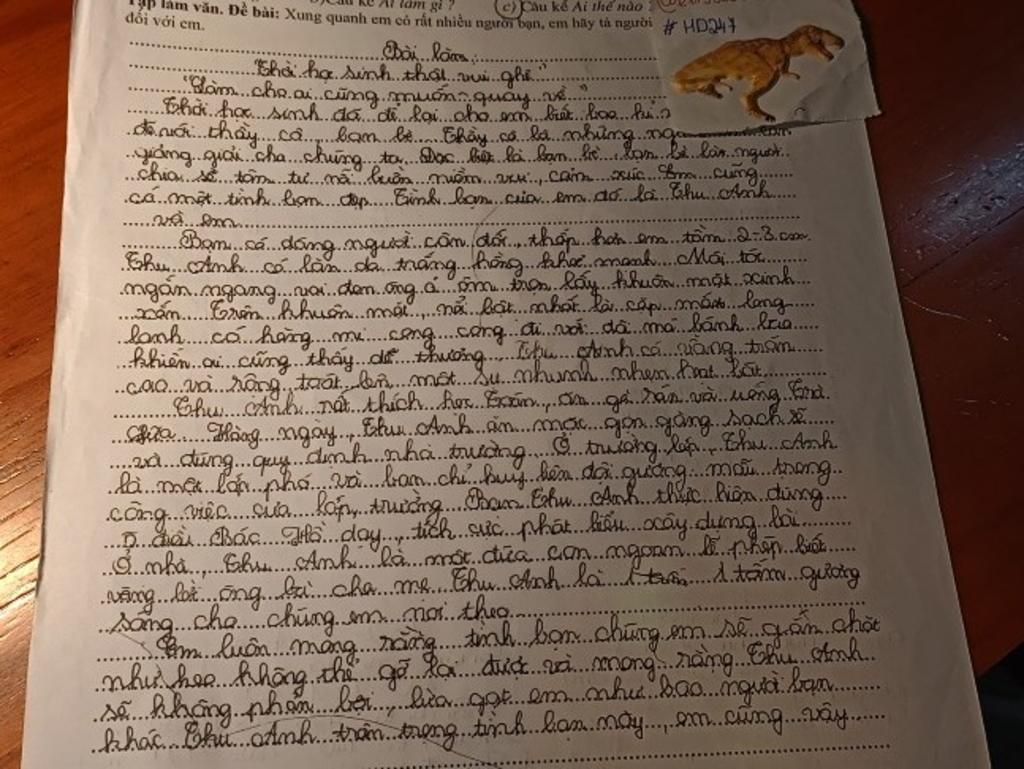 b) Câu kể Ai làm gì ? c) Câu kể Ai thế nào ?
Tập làm văn. Đề bài: Xung quanh em có rất nhiều người bạn, em hãy tả người
đối với em.
# HD247
Bài làm
"Thời học sinh thật vui ghê"
"Làm cho ai cũng muốn quay về"
Thời học sinh đã để lại cho em biết bao
đối với thầy cô, bạn bè. Thầy cô là những
giảng giải cho chúng ta. Đặc biệt là bạn bè, bạn bè là người
chia sẻ tâm tư nỗi buồn niềm vui, cảm xúc. Em cũng
có một tình bạn đẹp. Tình bạn của em đó là Thu Anh
và em
Bạn có dáng người cân đối, thấp hơn em tầm 2-3 cm.
Thu Anh có làn da trắng hồng khỏe mạnh. Mái tóc
ngắn ngang vai đen óng ả ôm trọn lấy khuôn mặt xinh
xắn. Trên khuôn mặt, nổi bật nhất là cặp mắt long
lanh có hàng mi cong cong đi với đôi má bánh bao
khiến ai cũng thấy dễ thương. Thu Anh có vầng trán
cao và rộng, toát lên một sự nhanh nhẹn hoạt bát.
Thu Anh rất thích học Toán, ăn gà rán và uống Trà
sữa. Hàng ngày, Thu Anh ăn mặc gọn gàng sạch sẽ
và đúng quy định nhà trường. Ở trường lớp, Thu Anh
là một lớp phó và ban chỉ huy liên đội gương mẫu trong
công việc của lớp, trường. Bạn Thu Anh thực hiện đúng
5 điều Bác Hồ dạy, tích cực phát biểu xây dựng bài.
Ở nhà, Thu Anh là một đứa con ngoan lễ phép biết
vâng lời ông bà cha mẹ. Thu Anh là 1 tấm gương
sáng cho chúng em noi theo.
Em luôn mong rằng tình bạn chúng em sẽ gắn chặt
như keo không thể gỡ lại được và mong rằng Thu Anh
sẽ không phản bội, lừa gạt em như bao người bạn
khác. Thu Anh trân trọng tình bạn này, em cũng vậy.